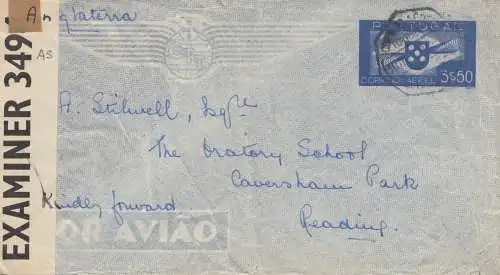 Anglaterra
As
EXAMINER 349
PORTUGAL
CORREIO AEREO 3$50
A. Stilwell, Esqre
The Oratory School
Caversham Park
Reading.
Kindly forward
POR AVIÃO